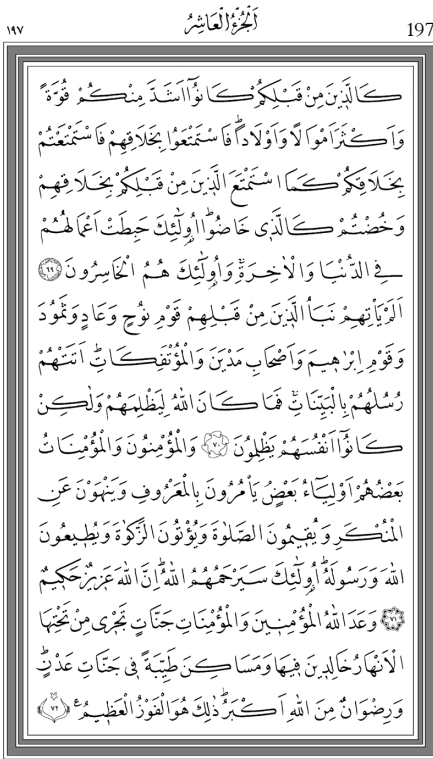 ١٩٧ اَلْجُزْءُ الْعَاشِرُ 197
كَالَّذٖينَ مِنْ قَبْلِكُمْ كَانُٓوا اَشَدَّ مِنْكُمْ قُوَّةً
وَاَكْثَرَ اَمْوَالًا وَاَوْلَادًاؕ فَاسْتَمْتَعُوا بِخَلَاقِهِمْ فَاسْتَمْتَعْتُمْ
بِخَلَاقِكُمْ كَمَا اسْتَمْتَعَ الَّذٖينَ مِنْ قَبْلِكُمْ بِخَلَاقِهِمْ
وَخُضْتُمْ كَالَّذٖى خَاضُواؕ اُولٰٓئِكَ حَبِطَتْ اَعْمَالُهُمْ
فِى الدُّنْيَا وَالْاٰخِرَةِۚ وَاُولٰٓئِكَ هُمُ الْخَاسِرُونَ ﴿٦٩﴾
اَلَمْ يَاْتِهِمْ نَبَاُ الَّذٖينَ مِنْ قَبْلِهِمْ قَوْمِ نُوحٍ وَعَادٍ وَثَمُودَ
وَقَوْمِ اِبْرٰهٖيمَ وَاَصْحَابِ مَدْيَنَ وَالْمُؤْتَفِكَاتِؕ اَتَتْهُمْ
رُسُلُهُمْ بِالْبَيِّنَاتِۚ فَمَا كَانَ اللّٰهُ لِيَظْلِمَهُمْ وَلٰكِنْ
كَانُٓوا اَنْفُسَهُمْ يَظْلِمُونَ ﴿٧٠﴾ وَالْمُؤْمِنُونَ وَالْمُؤْمِنَاتُ
بَعْضُهُمْ اَوْلِيَٓاءُ بَعْضٍۘ يَاْمُرُونَ بِالْمَعْرُوفِ وَيَنْهَوْنَ عَنِ
الْمُنْكَرِ وَيُقٖيمُونَ الصَّلٰوةَ وَيُؤْتُونَ الزَّكٰوةَ وَيُطٖيعُونَ
اللّٰهَ وَرَسُولَهُؕ اُولٰٓئِكَ سَيَرْحَمُهُمُ اللّٰهُؕ اِنَّ اللّٰهَ عَزٖيزٌ حَكٖيمٌ
﴿٧١﴾ وَعَدَ اللّٰهُ الْمُؤْمِنٖينَ وَالْمُؤْمِنَاتِ جَنَّاتٍ تَجْرٖى مِنْ تَحْتِهَا
الْاَنْهَارُ خَالِدٖينَ فٖيهَا وَمَسَاكِنَ طَيِّبَةً فٖى جَنَّاتِ عَدْنٍؕ
وَرِضْوَانٌ مِنَ اللّٰهِ اَكْبَرُؕ ذٰلِكَ هُوَ الْفَوْزُ الْعَظٖيمُ ع ﴿٧٢﴾